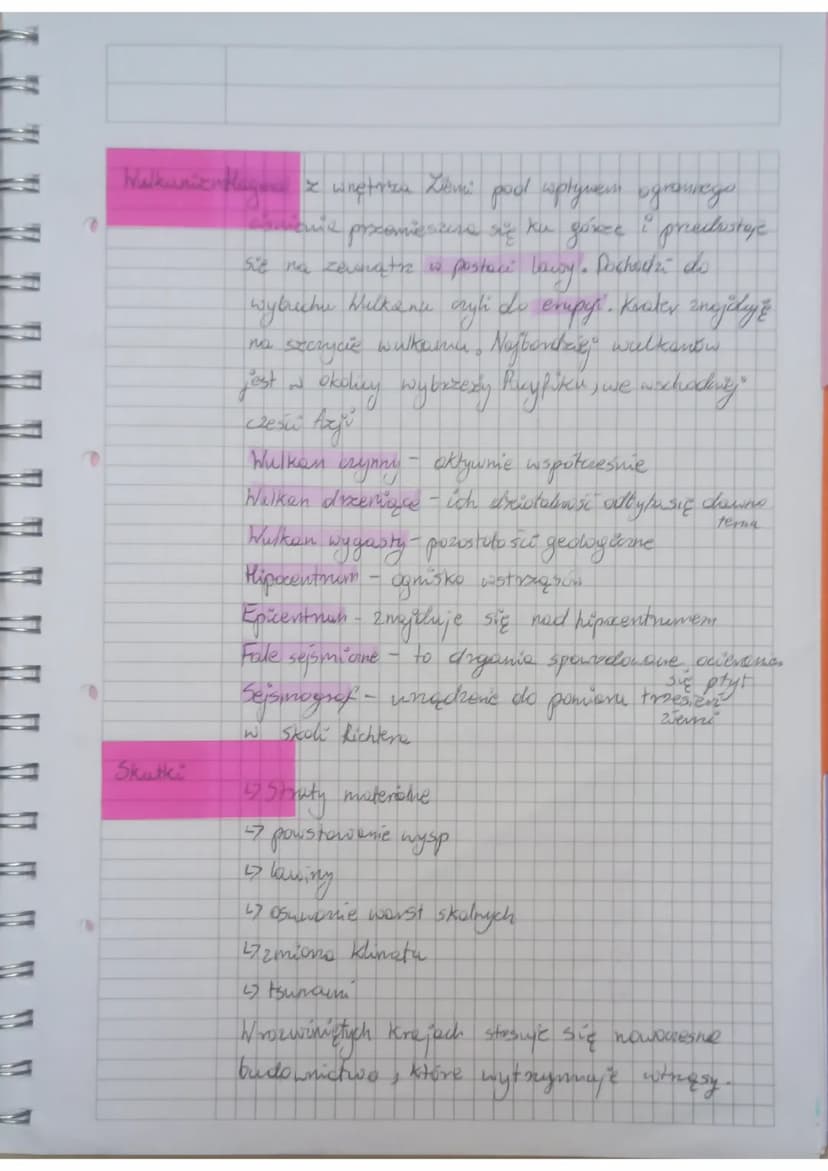 Wulkanizm Magma z wnętrza Ziemi pod wpływem ogromnego
ciśnienia przemieszcza się ku górze i przedostaje
się na zewnątrz w postaci lawy. Dochodzi do
wybuchu Wulkanu czyli do erupcji. Krater znajduję
na szczycie wulkanu. Najbardziej wulkanów
jest w okolicy wybrzeży Pacyfiku, we wschodniej
cześci Azji
Wulkan czynny - aktywnie współcześnie
Wulkan drzemiące - ich działalność odbyła się dawno
temu
Wulkan wygasły - pozostałości geologiczne
Hipocentrum - ognisko wstrząsów
Epicentrum - znajduje się nad hipocentrumem
Fale sejsmiczne - to drgania spowodowane ocierania
się płyt
Sejsmograf - urządzenie do pomiaru trzęsień
ziemi
w skali Richtera
Skutki
↳ Straty materialne
↳ powstawanie wysp
↳ lawiny
↳ osuwanie warst skalnych
↳ zmiana klimatu
↳ tsunami
W rozwiniętych krajach stosuje się nowoczesne
budownictwo, które wytrzymuje